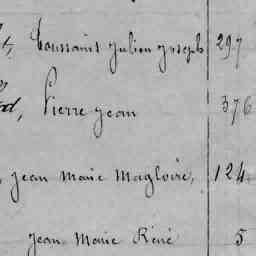 Toussaint Julien Joseph 297
Pierre Jean 376
Jean Marie Magloire, 124
Jean Marie Réné 5